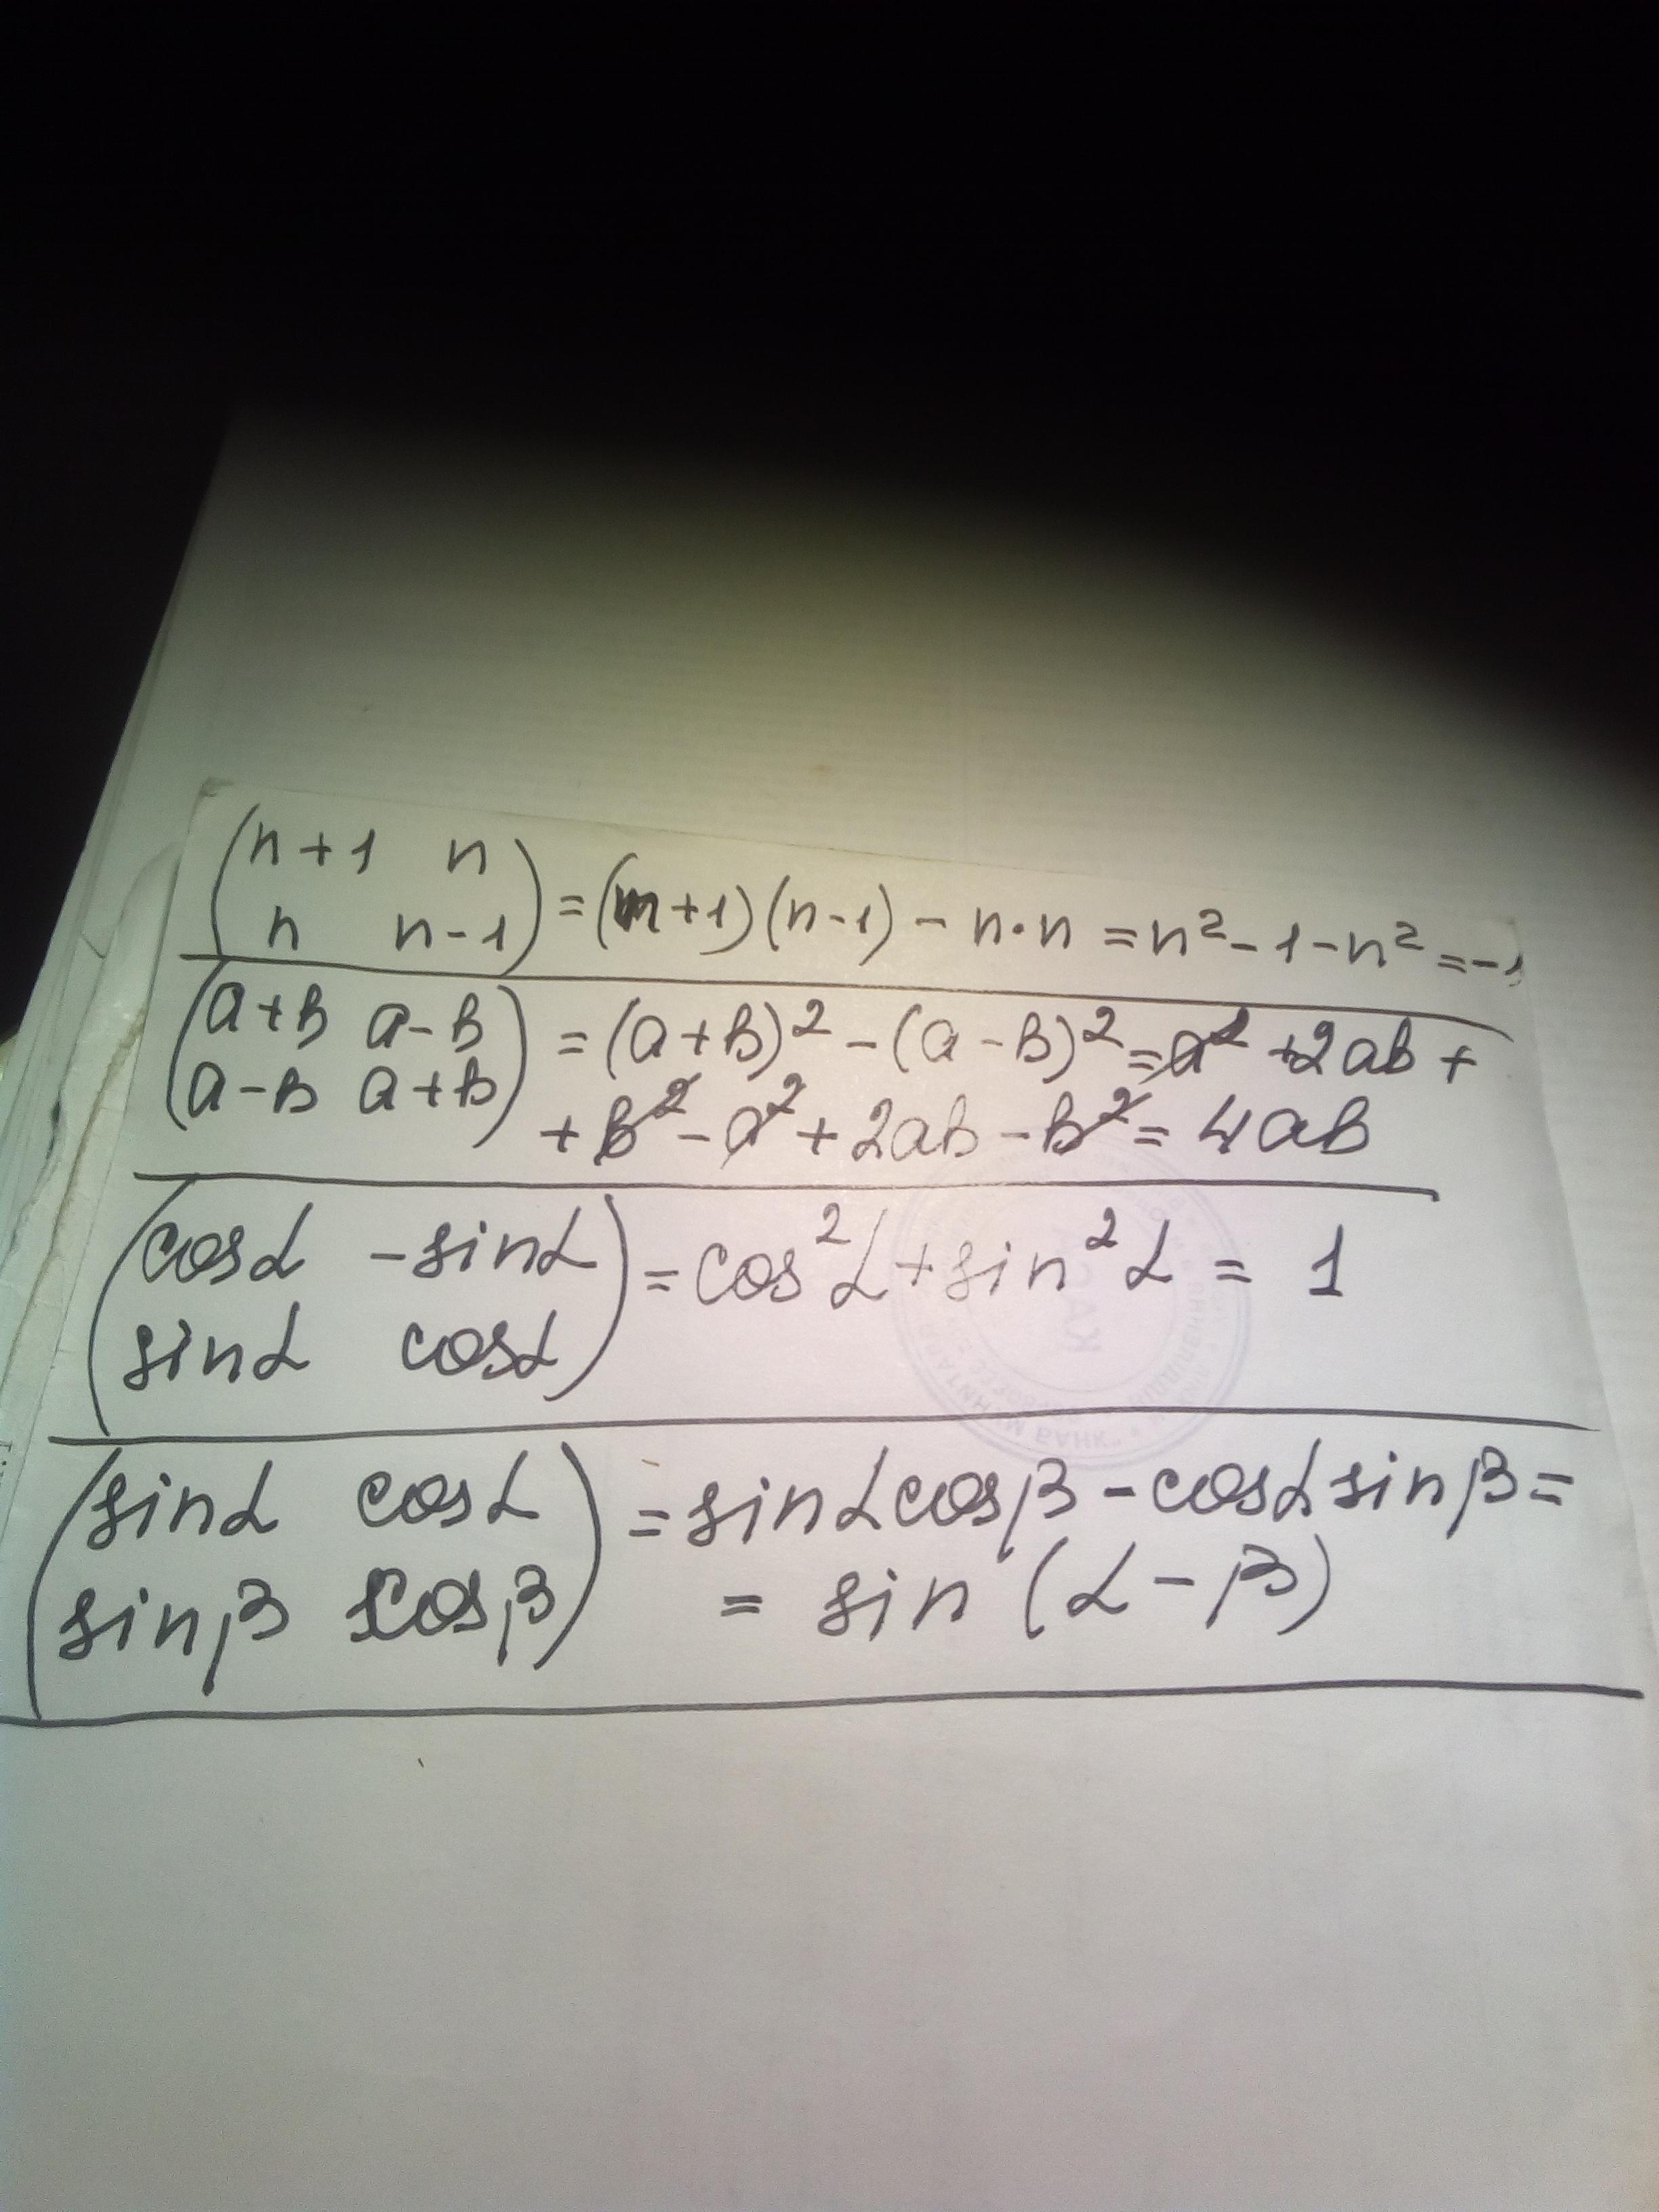 (n+1 n
n n-1) = (n+1)(n-1) - n·n = n² - 1 - n² = -1
(a+b a-b
a-b a+b) = (a+b)² - (a-b)² = a² + 2ab +
+ b² - a² + 2ab - b² = 4ab
(cosα -sinα
sinα cosα) = cos²α + sin²α = 1
(sinα cosα
sinβ cosβ) = sinαcosβ - cosαsinβ =
= sin (α - β)
БАНК"